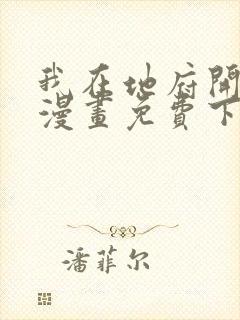 我在地府開
漫畫免費下
潘菲尔